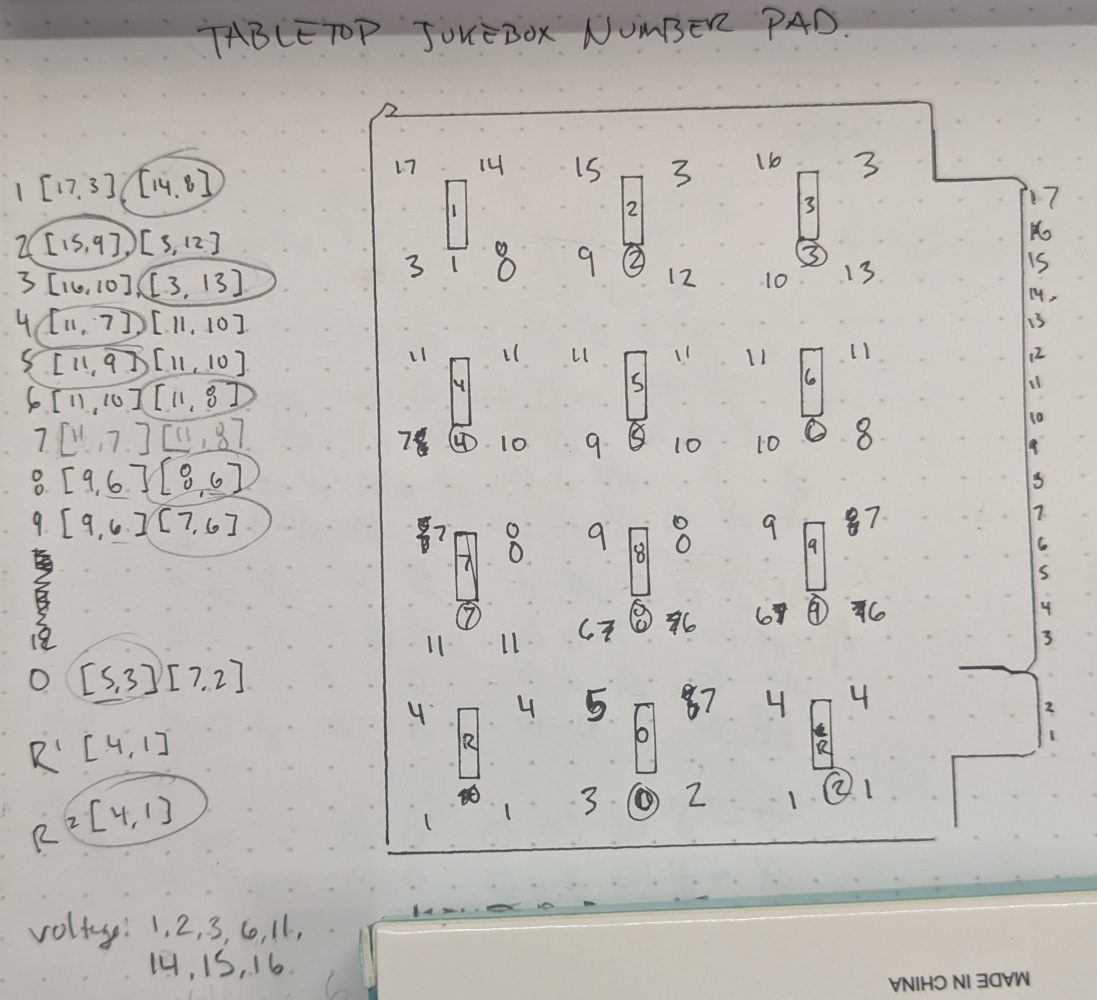 TABLETOP JUKEBOX NUMBER PAD.
1 [17,3], [14,8]
2 [15,9], [3,12]
3 [16,10], [3, 13]
4 [11, 7], [11, 10]
5 [11,9] [11, 10]
6 [11,10] [11, 8]
7 [11,7] [11,8]
8 [9,6] [8,6]
9 [9,6] [7,6]
12
0 [5,3] [7,2]
R1 [4,1]
R2 [4,1]
voltage: 1,2,3,6,11,
14,15,16
17 14 15 3 16 3
1 2 3
3 1 8 9 2 12 3 10 13
11 11 11 11 11 11
4 5 6
7 4 10 9 5 10 10 6 8
7 8 9 8 9 7
7 8 9
11 7 11 6 8 6 6 9 6
4 4 5 7 4 4
R 0 R
1 1 3 0 2 1 2 1
17
16
15
14.
13
12
11
10
9
8
7
6
5
4
3
2
1
MADE IN CHINA